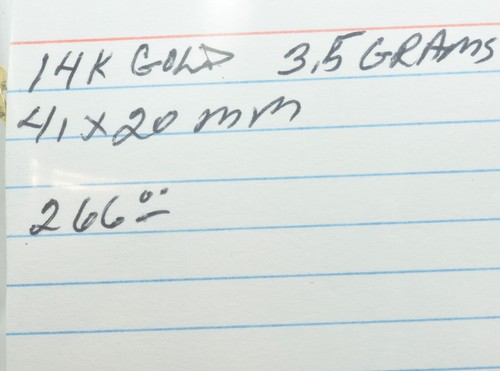 14K GOLD 3.5 GRAMS
41 x 20 mm
266⁰⁰